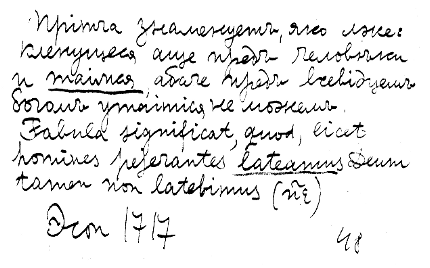 Притча знаменуетъ, яко лже:
кленущеся аще предъ человѣки
и таимся, обаче предъ всевидцемъ
богомъ утаитися не можемъ.
Fabula significat, quod, licet
homines pejerantes lateamus Deum
tamen non latebimus (
Эзоп 1717
48